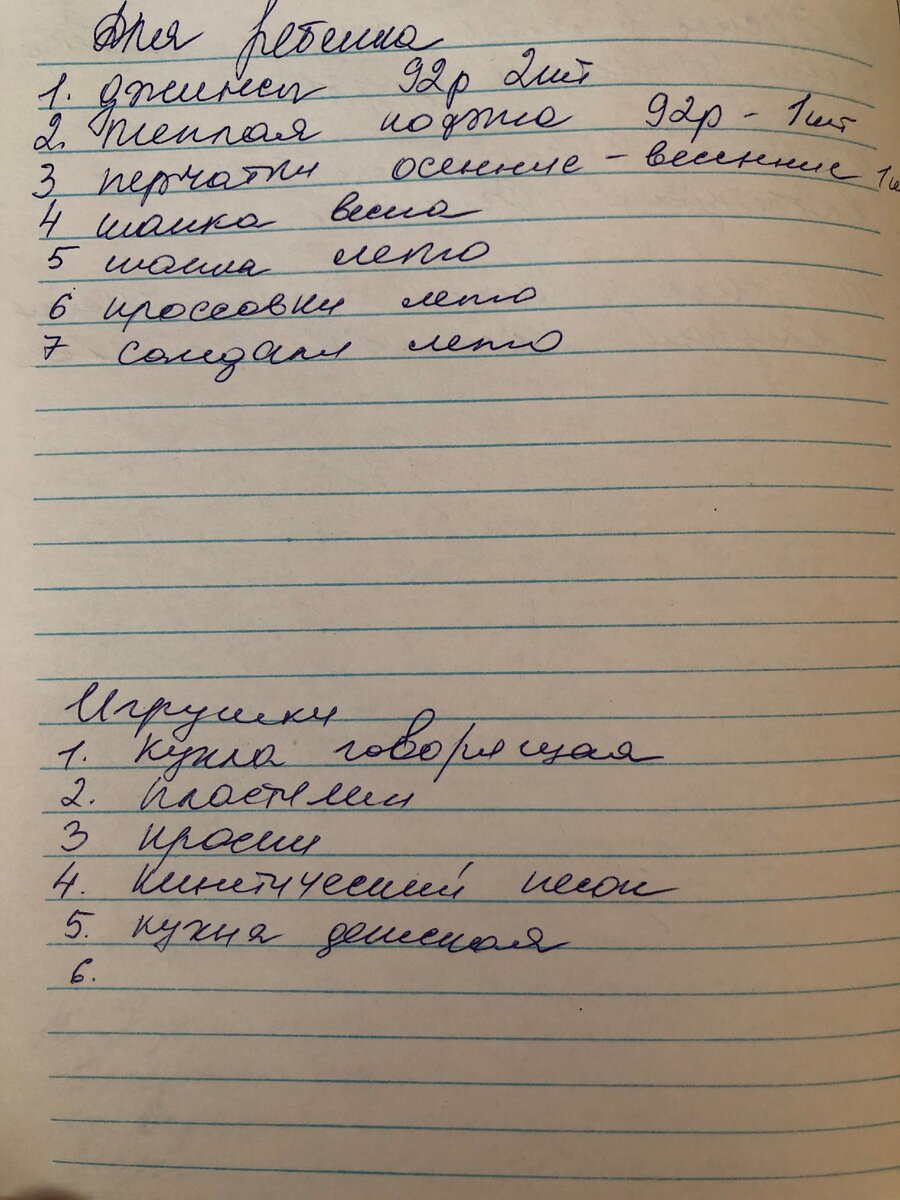 Для ребенка
1. джинсы 92р 2шт
2. теплая коджа 92р - 1шт
3 перчатки осенние - весенние 1ш
4 шапка весна
5 шапка лето
6 кроссовки лето
7 сандали лето
Игрушки
1. кукла говорящая
2. пластилин
3 краски
4. кинетический песок
5. кухня детская
6.